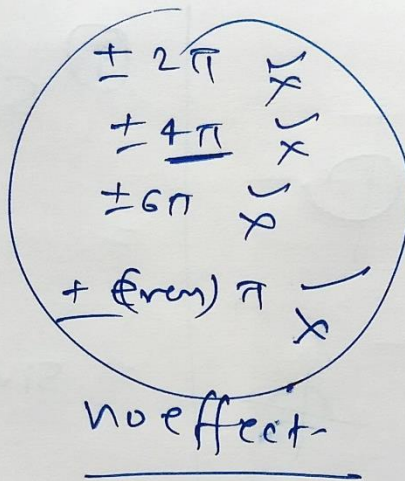 ± 2π ✓x
± 4π ✓x
± 6π ✓x
± (Even) π ✓x
no effect-